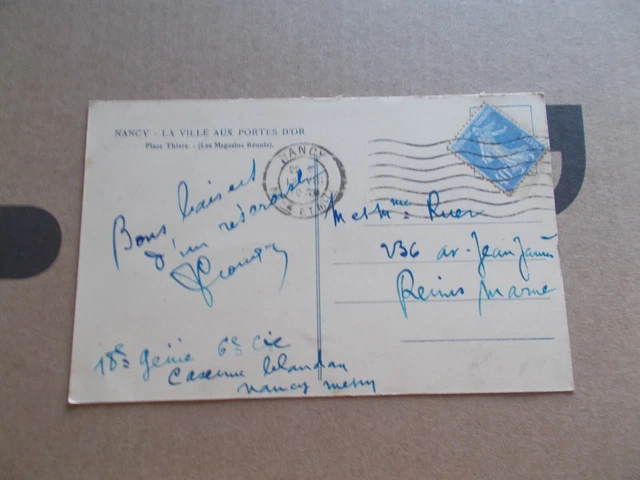 NANCY - LA VILLE AUX PORTES D'OR
Place Thiers. - (Les Magasins Réunis).
NANCY
Bons baisers
d'un
M et Mme Ruer
236 av. Jean Jaurès
Reims Marne
18e Génie 6e Cie
Caserne Blandan
Nancy